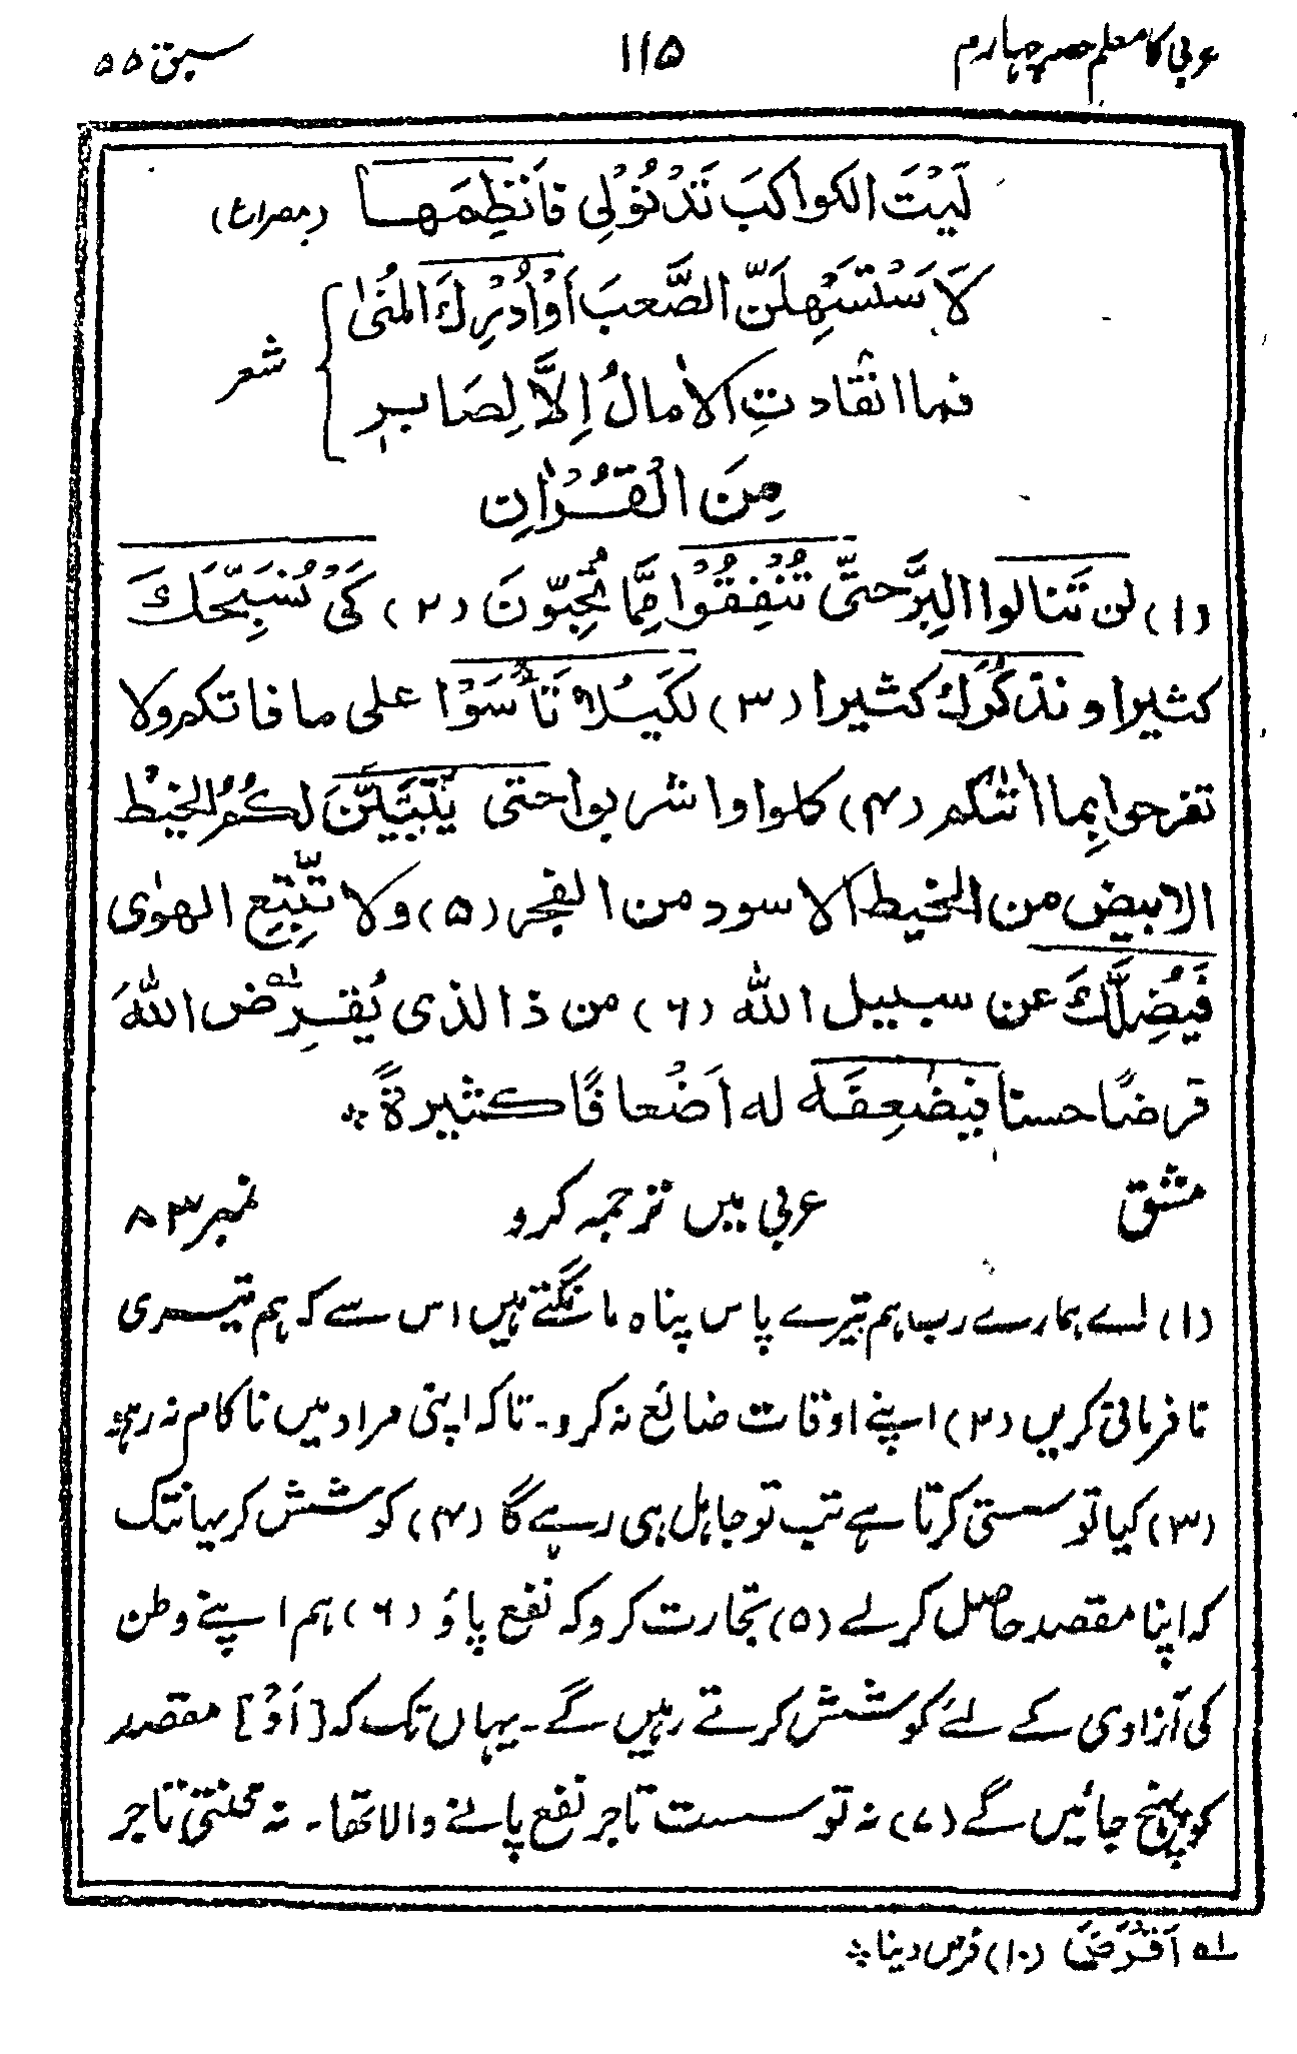 عربی کا معلم حصہ چہارم ۱۱۵ سبق ۵۵
لَیْتَ الکواکبَ تَدْنُوْلِی فَاَنْظِمَھا (مصراع)
لَاَسْتَسْہِلَنَّ الصَّعبَ اَوْاُدْرِكَ المُنیٰ
شعر
فما انْقادتِ الاٰمالُ اِلَّا لِصَابرٍ
مِنَ الْقُرْاٰنِ
(۱) لن تَنالوا البِرَّ حتیّٰ تُنْفِقُوْا مِمَّا تُحِبّوْنَ (۲) کَیْ نُسَبِّحَكَ
کثیرا و نذکُرَكَ کثیرا (۳) لکَیْلاَ تَأْسَوْا علی ما فاتکم ولا
تفرحوا بِما اٰتٰکم (۴) کلوا وا شربوا حتی یَتَبَیَّنَ لکُمُ الخیْطُ
الابیض من الخیط الاسود من الفجر (۵) ولا تتَّبِعِ الھوٰی
فَیُضِلَّكَ عن سبیل اللّٰه (۶) من ذا الذی یُقرِضُ۱ اللّٰهَ
قرضًا حسنا فیضٰعِفَهٗ له اَضْعافًا کثیرةً ۞
مشق عربی میں ترجمہ کرو نمبر ۸۳
(۱) اے ہمارے رب ہم تیرے پاس پناہ مانگتے ہیں اس سے کہ ہم تیری
نافرمانی کریں (۲) اپنے اوقات ضائع نہ کرو۔ تاکہ اپنی مراد میں ناکام نہ رہو
(۳) کیا تو سستی کرتا ہے تب تو جاہل ہی رہے گا (۴) کوشش کر یہانتک
کہ اپنا مقصد حاصل کرلے (۵) تجارت کرو کہ نفع پاؤ (۶) ہم اپنے وطن
کی آزادی کے لئے کوشش کرتے رہیں گے۔ یہاں تک کہ [اَوْ] مقصد
کو پہنچ جائیں گے (۷) نہ تو سست تاجر نفع پانے والا تھا۔ نہ محنتی تاجر
۱ اَقْرَضَ (۱۰) قرض دینا ۞